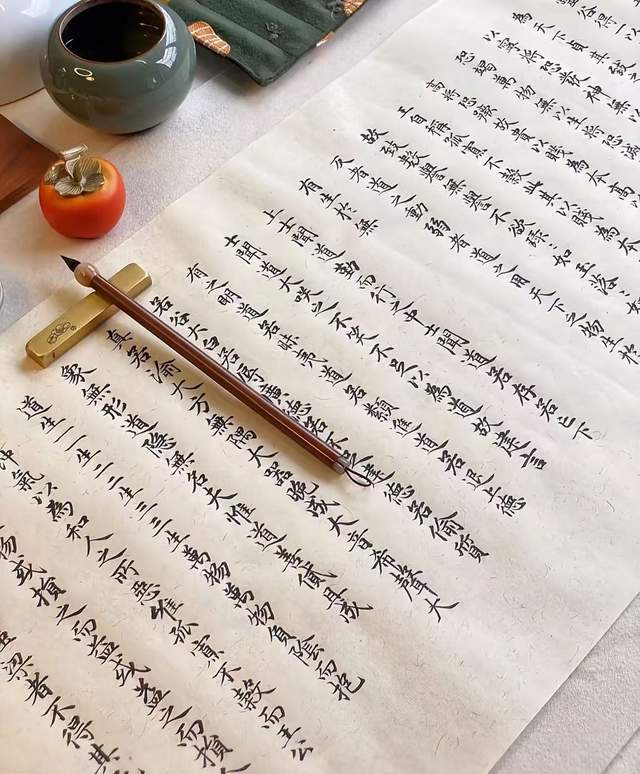 盈谷得一以
為天下貞其致
以寧將恐發神無
恐竭萬物無以生將恐滅
高將恐蹶故貴以賤為本高
王自稱孤寡不穀此其以賤為本
故致數譽無譽不欲琭琭如玉珞
反者道之動弱者道之用天下之物生於
有生於無
上士聞道勤而行之中士聞道若存若亡下
士聞道大笑之不笑不足以為道故建言
有之明道若昧夷道若纇進道若退上德
若谷大白若辱廣德若不足建德若偷質
真若渝大方無隅大器晚成大音希聲大
象無形道隱無名夫惟道善貸且成
道生一一生二二生三三生萬物萬物負陰而抱
沖氣以為和人之所惡惟孤寡不穀而王公
物或損之而益或益之而損人
梁者不得其